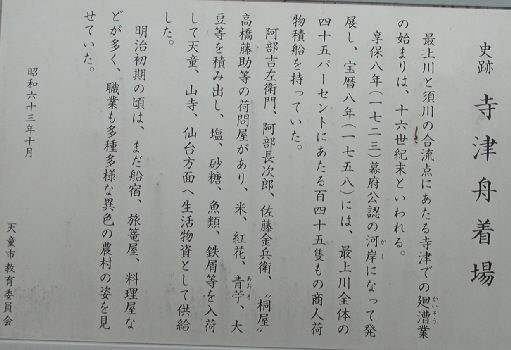 史跡 寺津舟着場
最上川と須川の合流点にあたる寺津での廻漕業
かいそう
の始まりは、十六世紀末といわれる。
享保八年(一七二三)幕府公認の河岸になって発
かし
展し、宝暦八年(一七五八)には、最上川全体の
四十五パーセントにあたる百四十五隻もの商人荷
物積船を持っていた。
阿部吉左衛門、阿部長次郎、佐藤金兵衛、〝桐屋〟
高橋藤助等の荷問屋があり、米、紅花、青苧、大
あおそ
豆等を積み出し、塩、砂糖、魚類、鉄屑等を入荷
して天童、山寺、仙台方面へ生活物資として供給
した。
明治初期の頃は、まだ船宿、旅篭屋、料理屋な
どが多く、職業も多種多様な異色の農村の姿を見
せていた。
昭和六十三年十月
天童市教育委員会